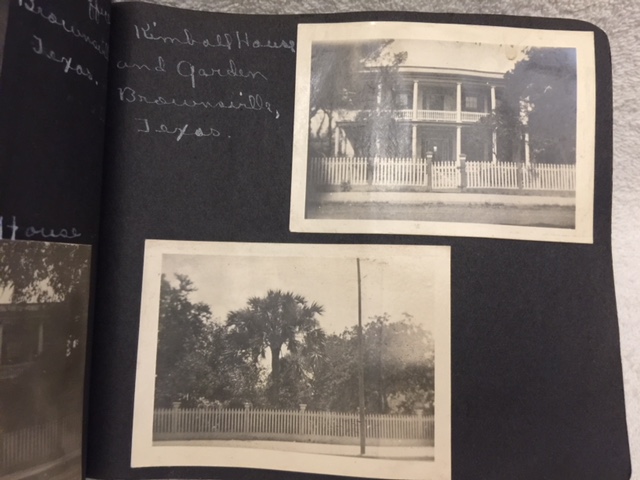 Texas.
Kimball House
and Garden
Brownsville,
Texas.
House